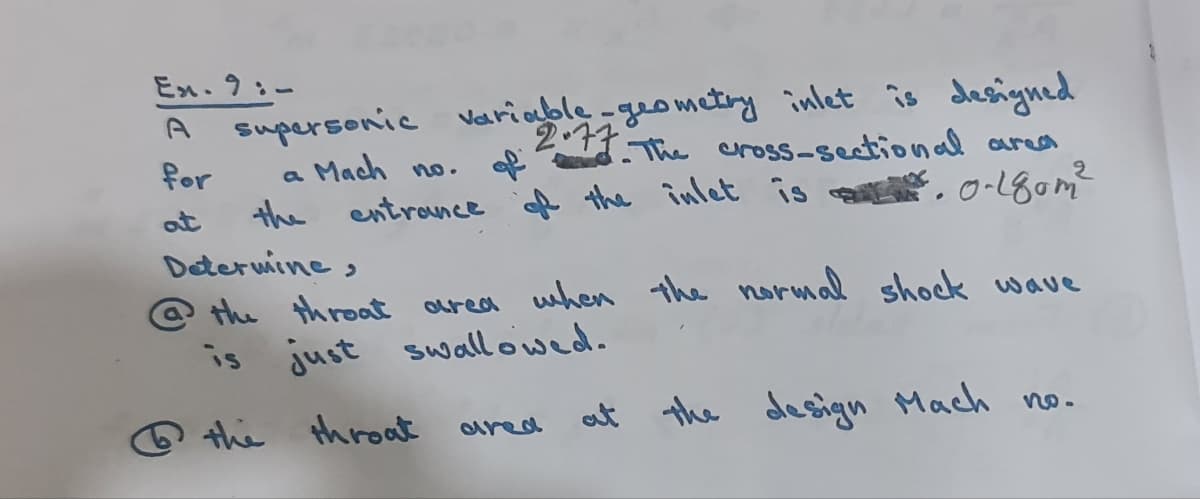 Ex. 9 :-
A supersonic variable-geometry inlet is designed
for a Mach no. of 2.77. The cross-sectional area
at the entrance of the inlet is . 0.180m²
Determine,
(a) the throat area when the normal shock wave
is just swallowed.
(b) the throat area at the design Mach no.